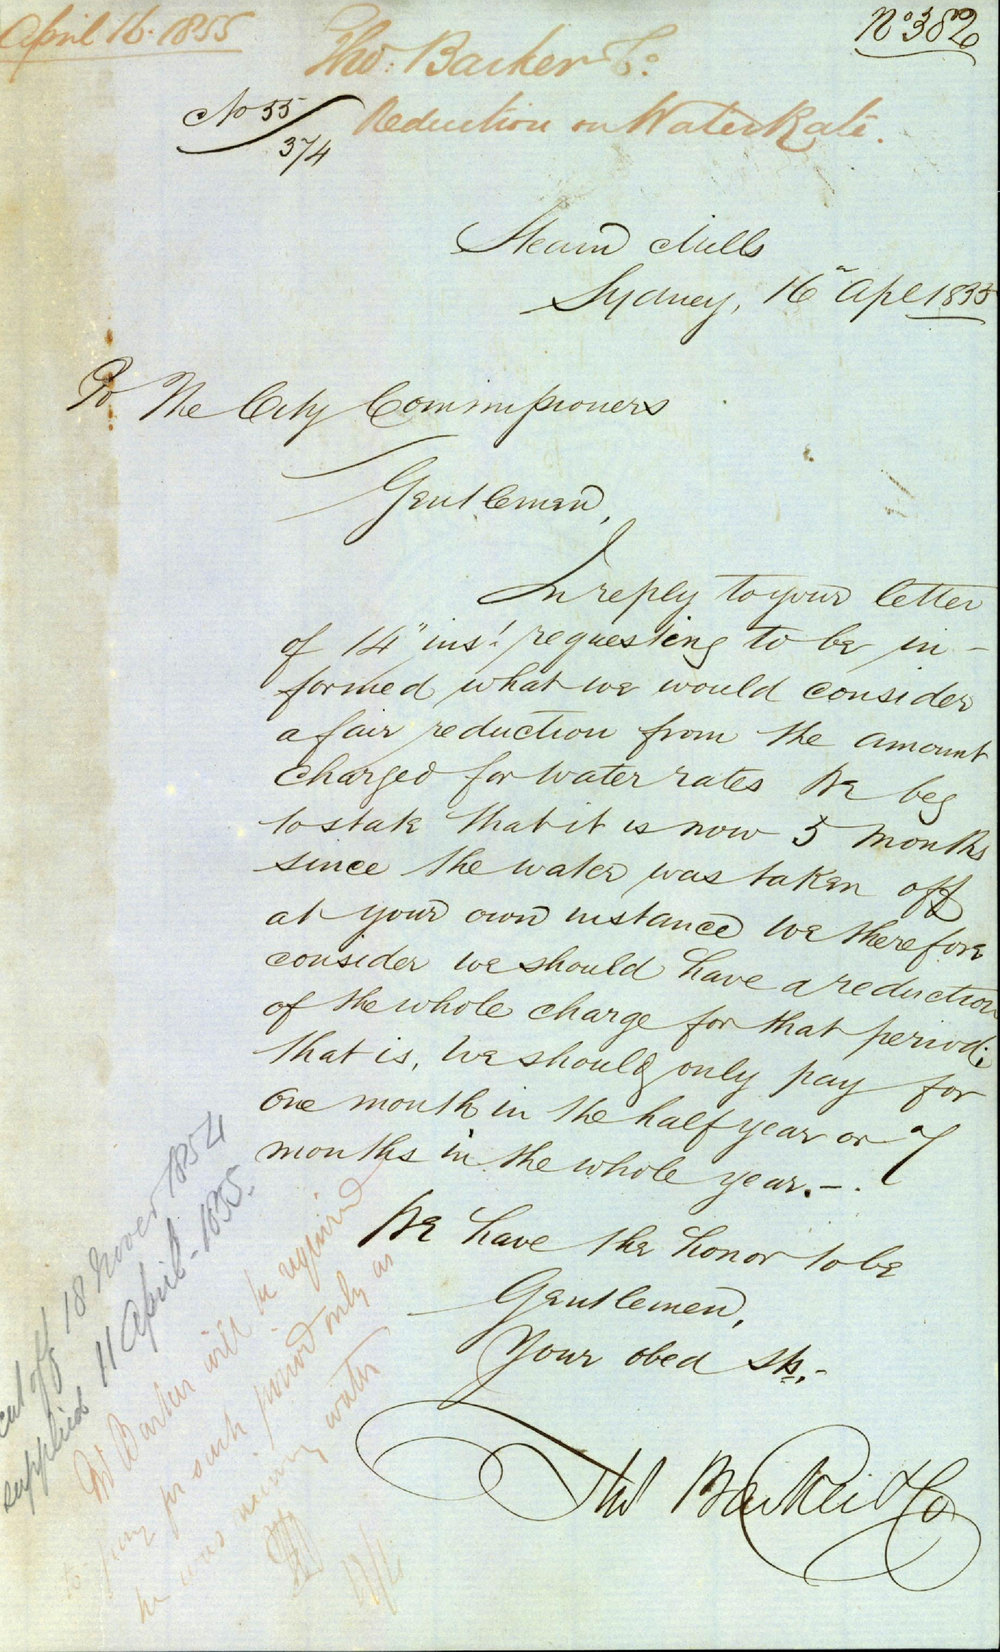 April 16. 1855
No 382
Tho: Barker & Co:
Reduction on Water Rate.
No 55/374
Steam Mills
Sydney, 16" Apl 1855
To The City Commissioners
Gentlemen,
In reply to your letter
of 14" inst. requesting to be in-
formed what we would consider
a fair reduction from the amount
charged for water rates We beg
to state that it is now 5 months
since the water was taken off
at your own instance we therefore
consider we should have a reduction
of the whole charge for that period;
that is, we should only pay for
one month in the half year or 7
months in the whole year. - .
We have the honor to be
Gentlemen,
Your obed Sts. -
Tho Barker & Co
cut off 18 Nover 1854
supplied 11 April - 1855.
Mr Barker will be required
to pay for such period only as
he was using water